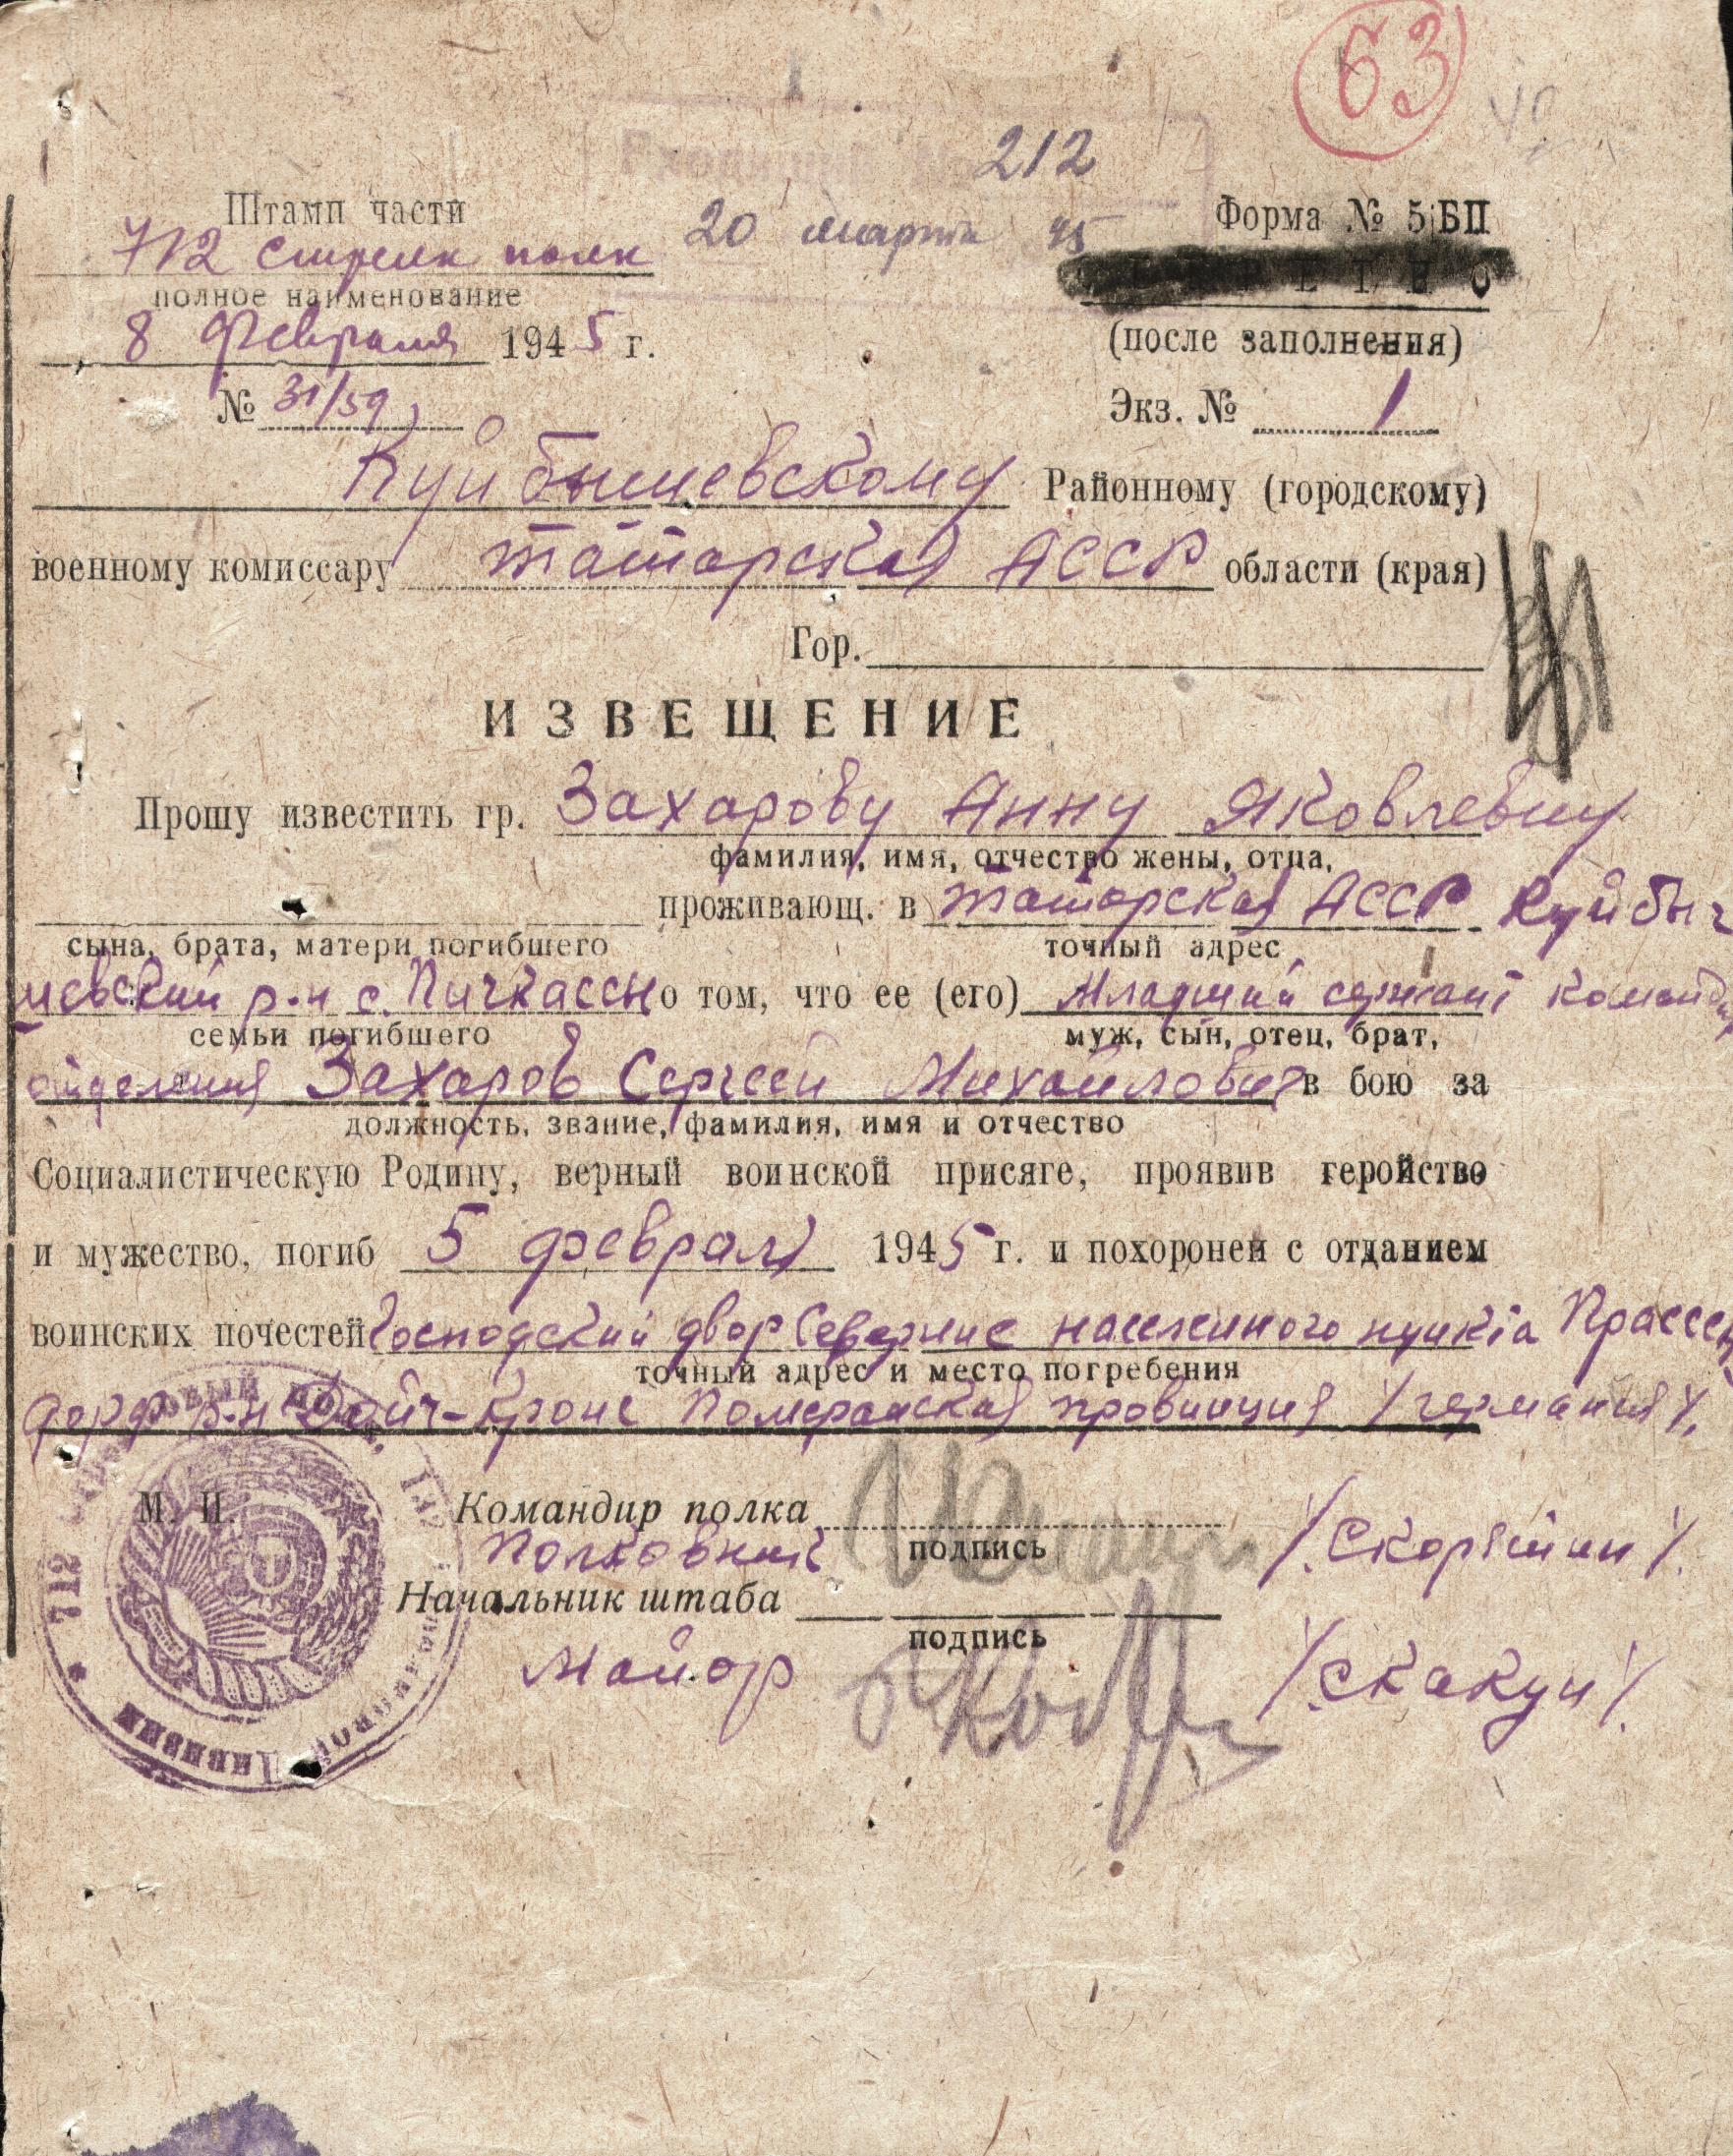 63
Входящий № 212
20 марта 45
Штамп части
712 стрелк полк
полное наименование
8 февраля 1945 г.
№ 31/59
Форма № 5/БП
(после заполнения)
Экз. № 1
Куйбышевскому Районному (городскому)
военному комиссару Татарская АССР области (края)
Гор.
ИЗВЕЩЕНИЕ
Прошу известить гр. Захарову Анну Яковлевну
фамилия, имя, отчество жены, отца,
проживающ. в Татарская АССР Куйбы
сына, брата, матери погибшего точный адрес
шевский р-н с. Пичкассы о том, что ее (его) Младший сержант команди
семьи погибшего муж, сын, отец, брат,
отделения Захаров Сергей Михайлович в бою за
должность, звание, фамилия, имя и отчество
Социалистическую Родину, верный воинской присяге, проявив геройство
и мужество, погиб 5 февраля 1945 г. и похоронен с отданием
воинских почестей Господский двор Севернее населенного пункта Прассен
точный адрес и место погребения
дорф р-н Дойч-Кроне Померанская провинция /Германия/.
М. П.
Командир полка
Полковник подпись /Скоряткин/.
Начальник штаба
подпись
Майор /Скакун/.
* 712 Дивизии